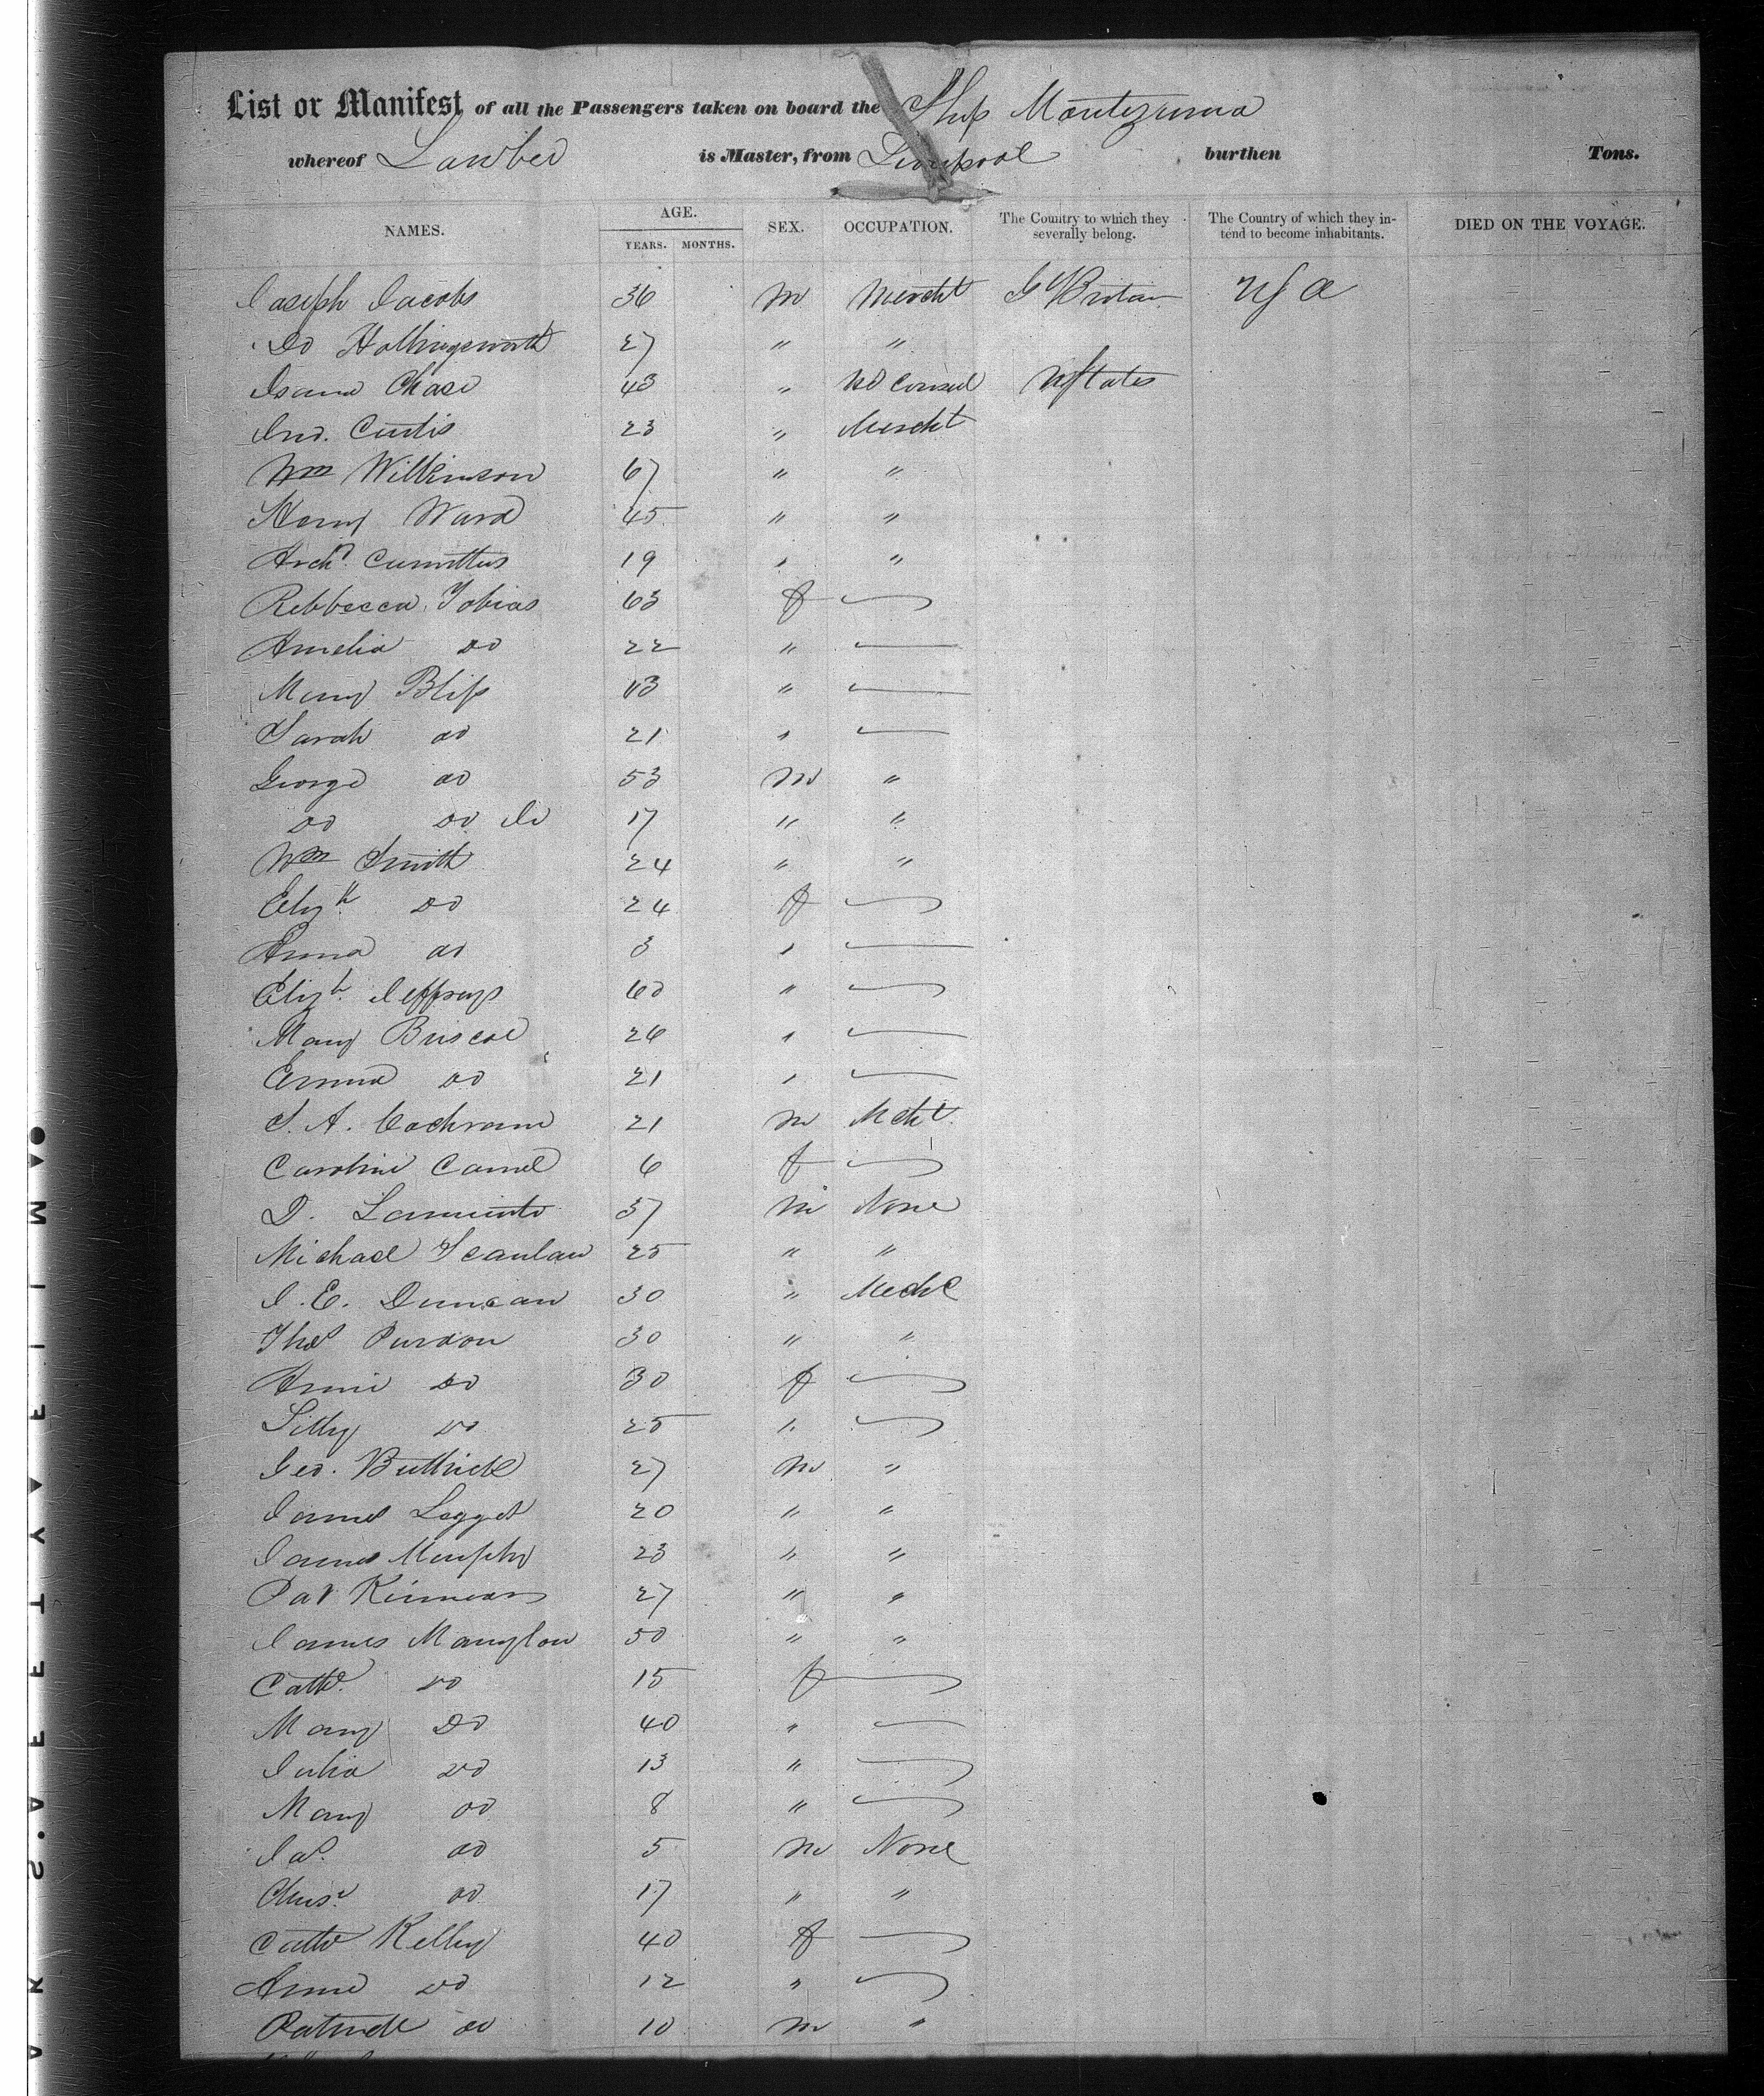 List or Manifest of all the Passengers taken on board the Ship Montezuma
whereof Lawber is Master, from Liverpool burthen Tons.
NAMES. AGE. YEARS. MONTHS. SEX. OCCUPATION. The Country to which they severally belong. The Country of which they intend to become inhabitants. DIED ON THE VOYAGE.
Joseph Jacobs 36 m Mercht Gt Britain U S A
Do Hollingsworth 27 " "
Chase 43 " US Consul U States
Jno. Curtis 23 " Mercht
Wm Wilkinson 67 " "
Henry Ward 45 " "
Archd. 19 " "
Rebbecca Tobias 63 f —
Amelia do 22 " —
Mary Bliss 13 " —
Sarah do 21 " —
George do 53 m "
do do Jr 17 " "
Wm Smith 24 " "
Elizh do 24 f —
Anna do 3 " —
Elizh. Jeffreys 60 " —
Mary Briscoe 26 " —
Emma do 21 " —
S. A. Cochrane 21 m Mcht.
Caroline Camel 6 f —
D. 37 m None
Michael Scanlan 25 " "
J. E. Duncan 30 " Mecht
Thos Purdon 30 " "
Annie do 30 f —
do 25 " —
Geo. Buttrick 27 m "
James Legget 20 " "
James Murphy 23 " "
Pat Kinnean 27 " "
James Manglon 50 " "
Cathe. do 15 f —
Mary do 40 " —
Julia do 13 " —
Mary do 8 " —
Jas. do 5 m None
do 17 " "
Cathe Kelley 40 f —
Anne do 12 " —
Patrick do 10 m "